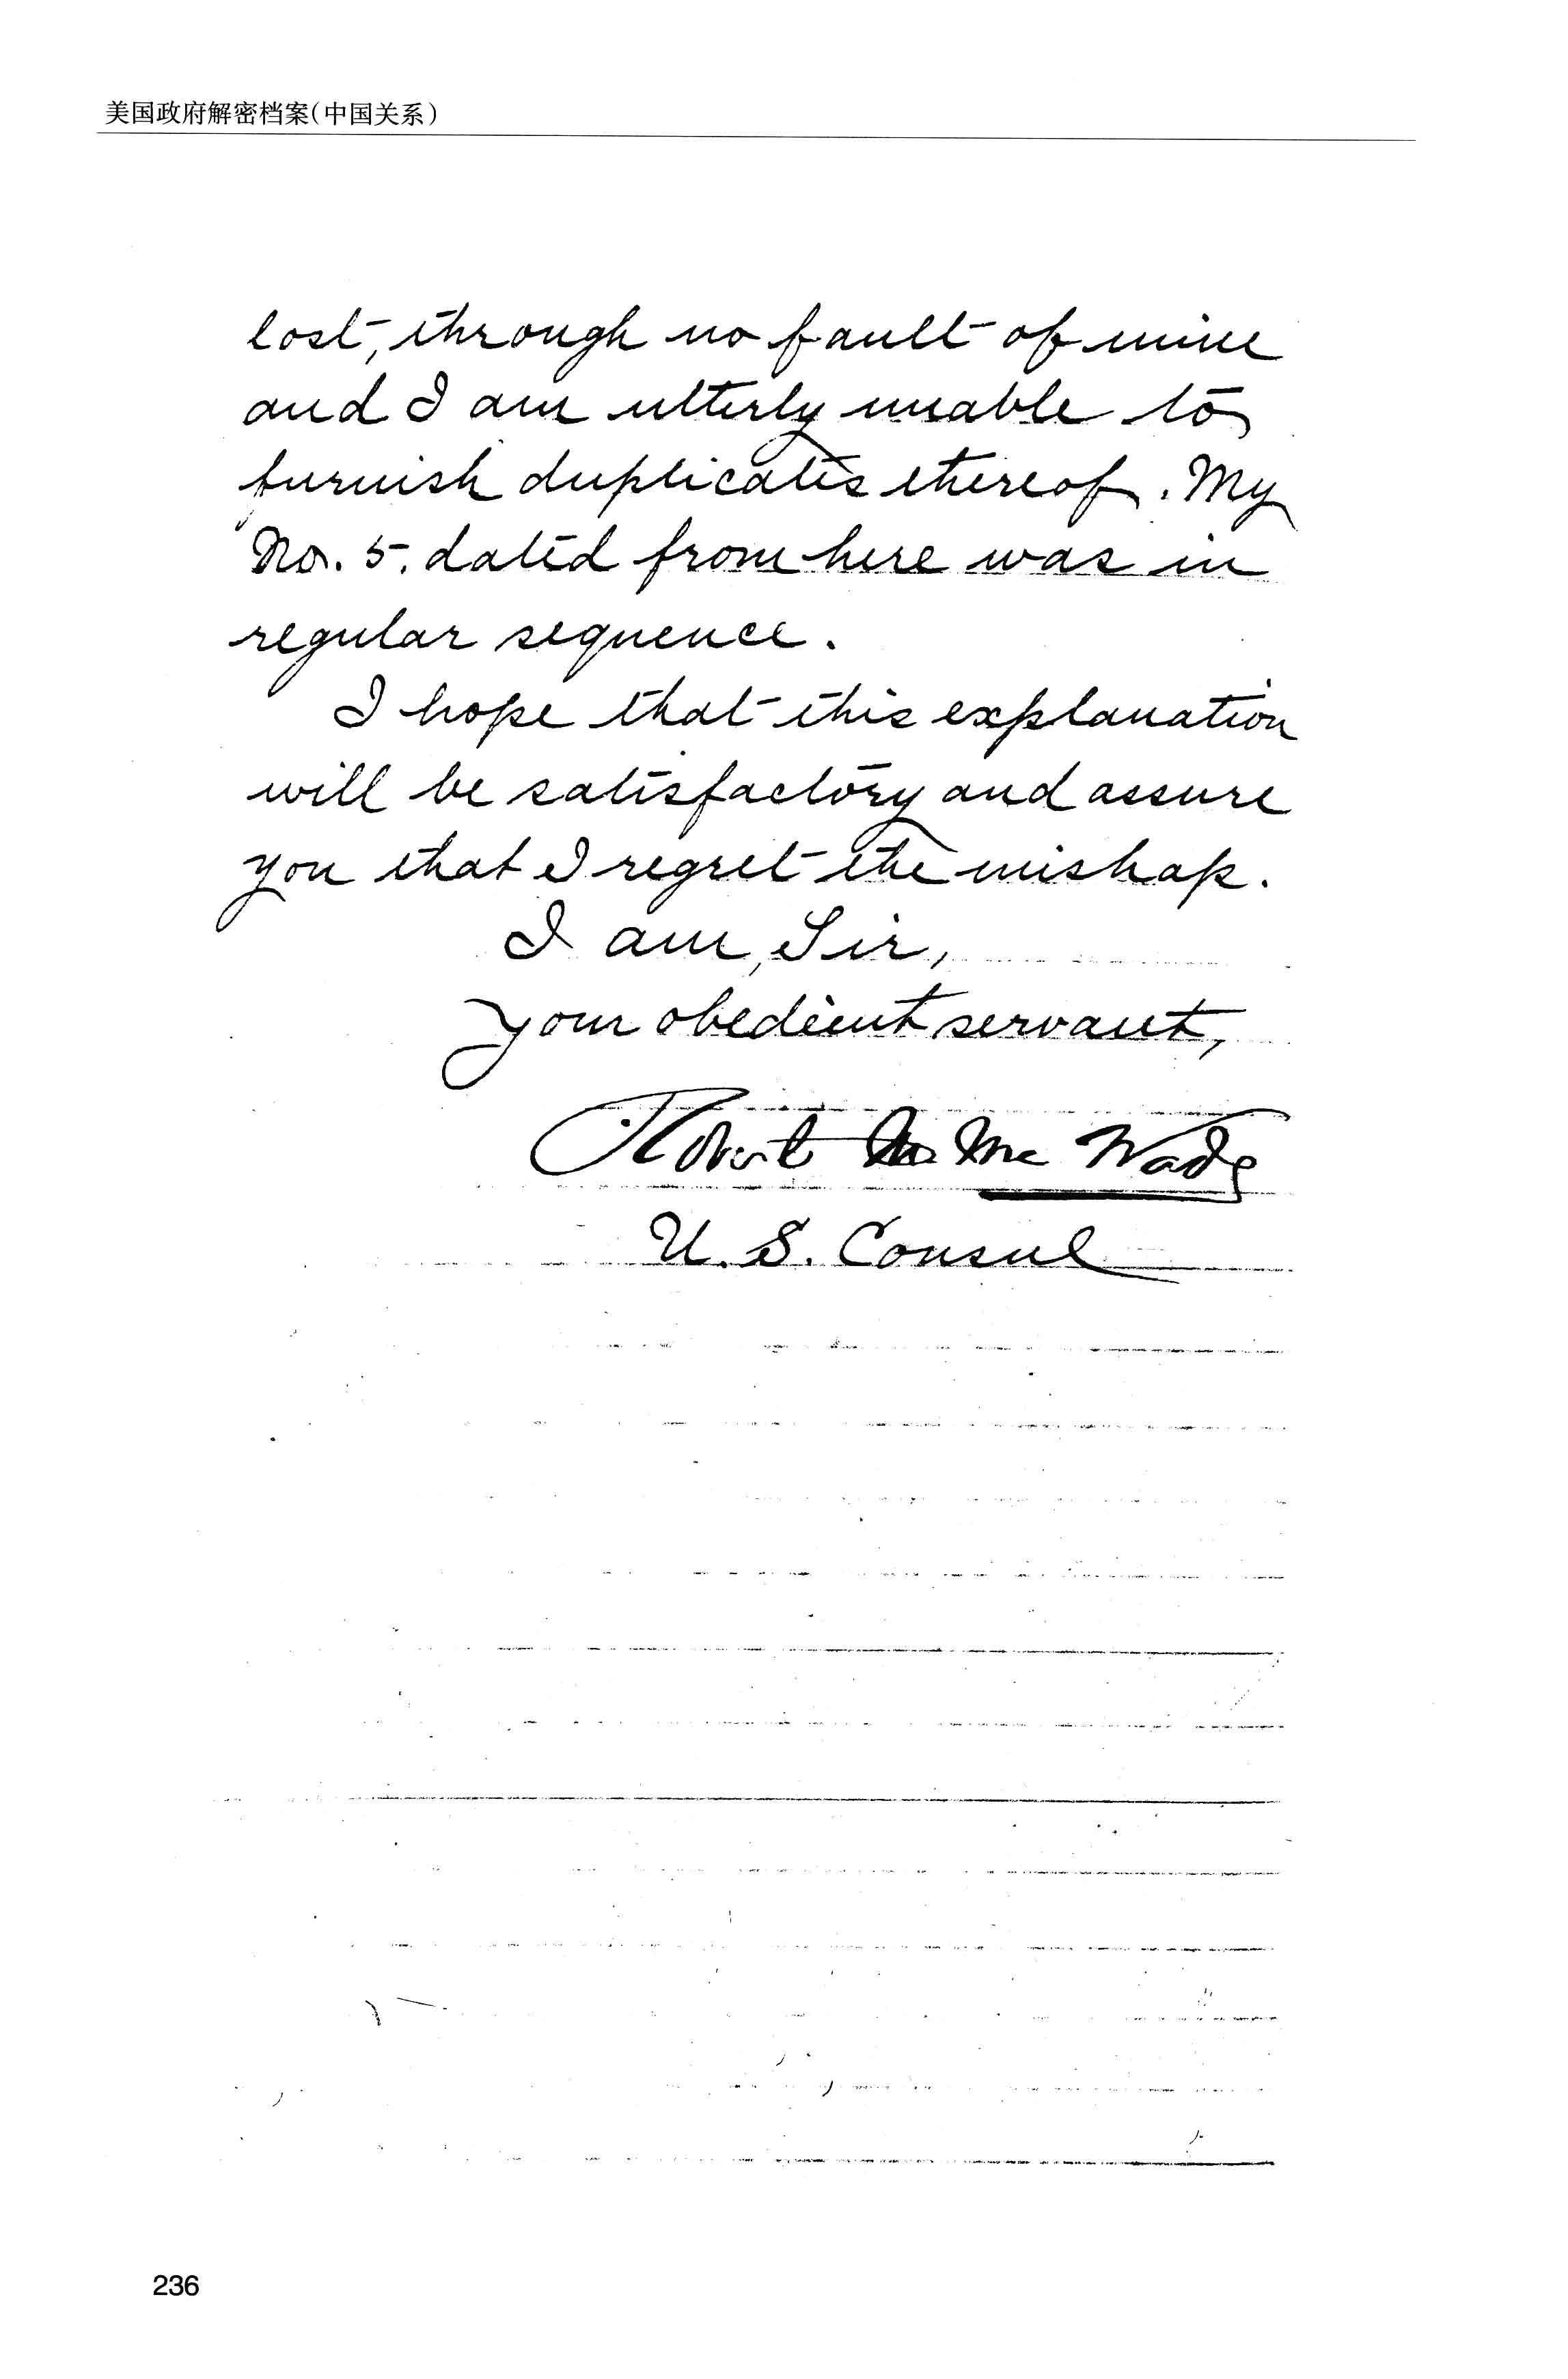 美国政府解密档案(中国关系)
lost, through no fault of mine
and I am utterly unable to
furnish duplicates thereof. My
No. 5. dated from here was in
regular sequence.
I hope that this explanation
will be satisfactory and assure
you that I regret the mishap.
I am, Sir,
your obedient servant,
Robert M. McWade
U. S. Consul
236